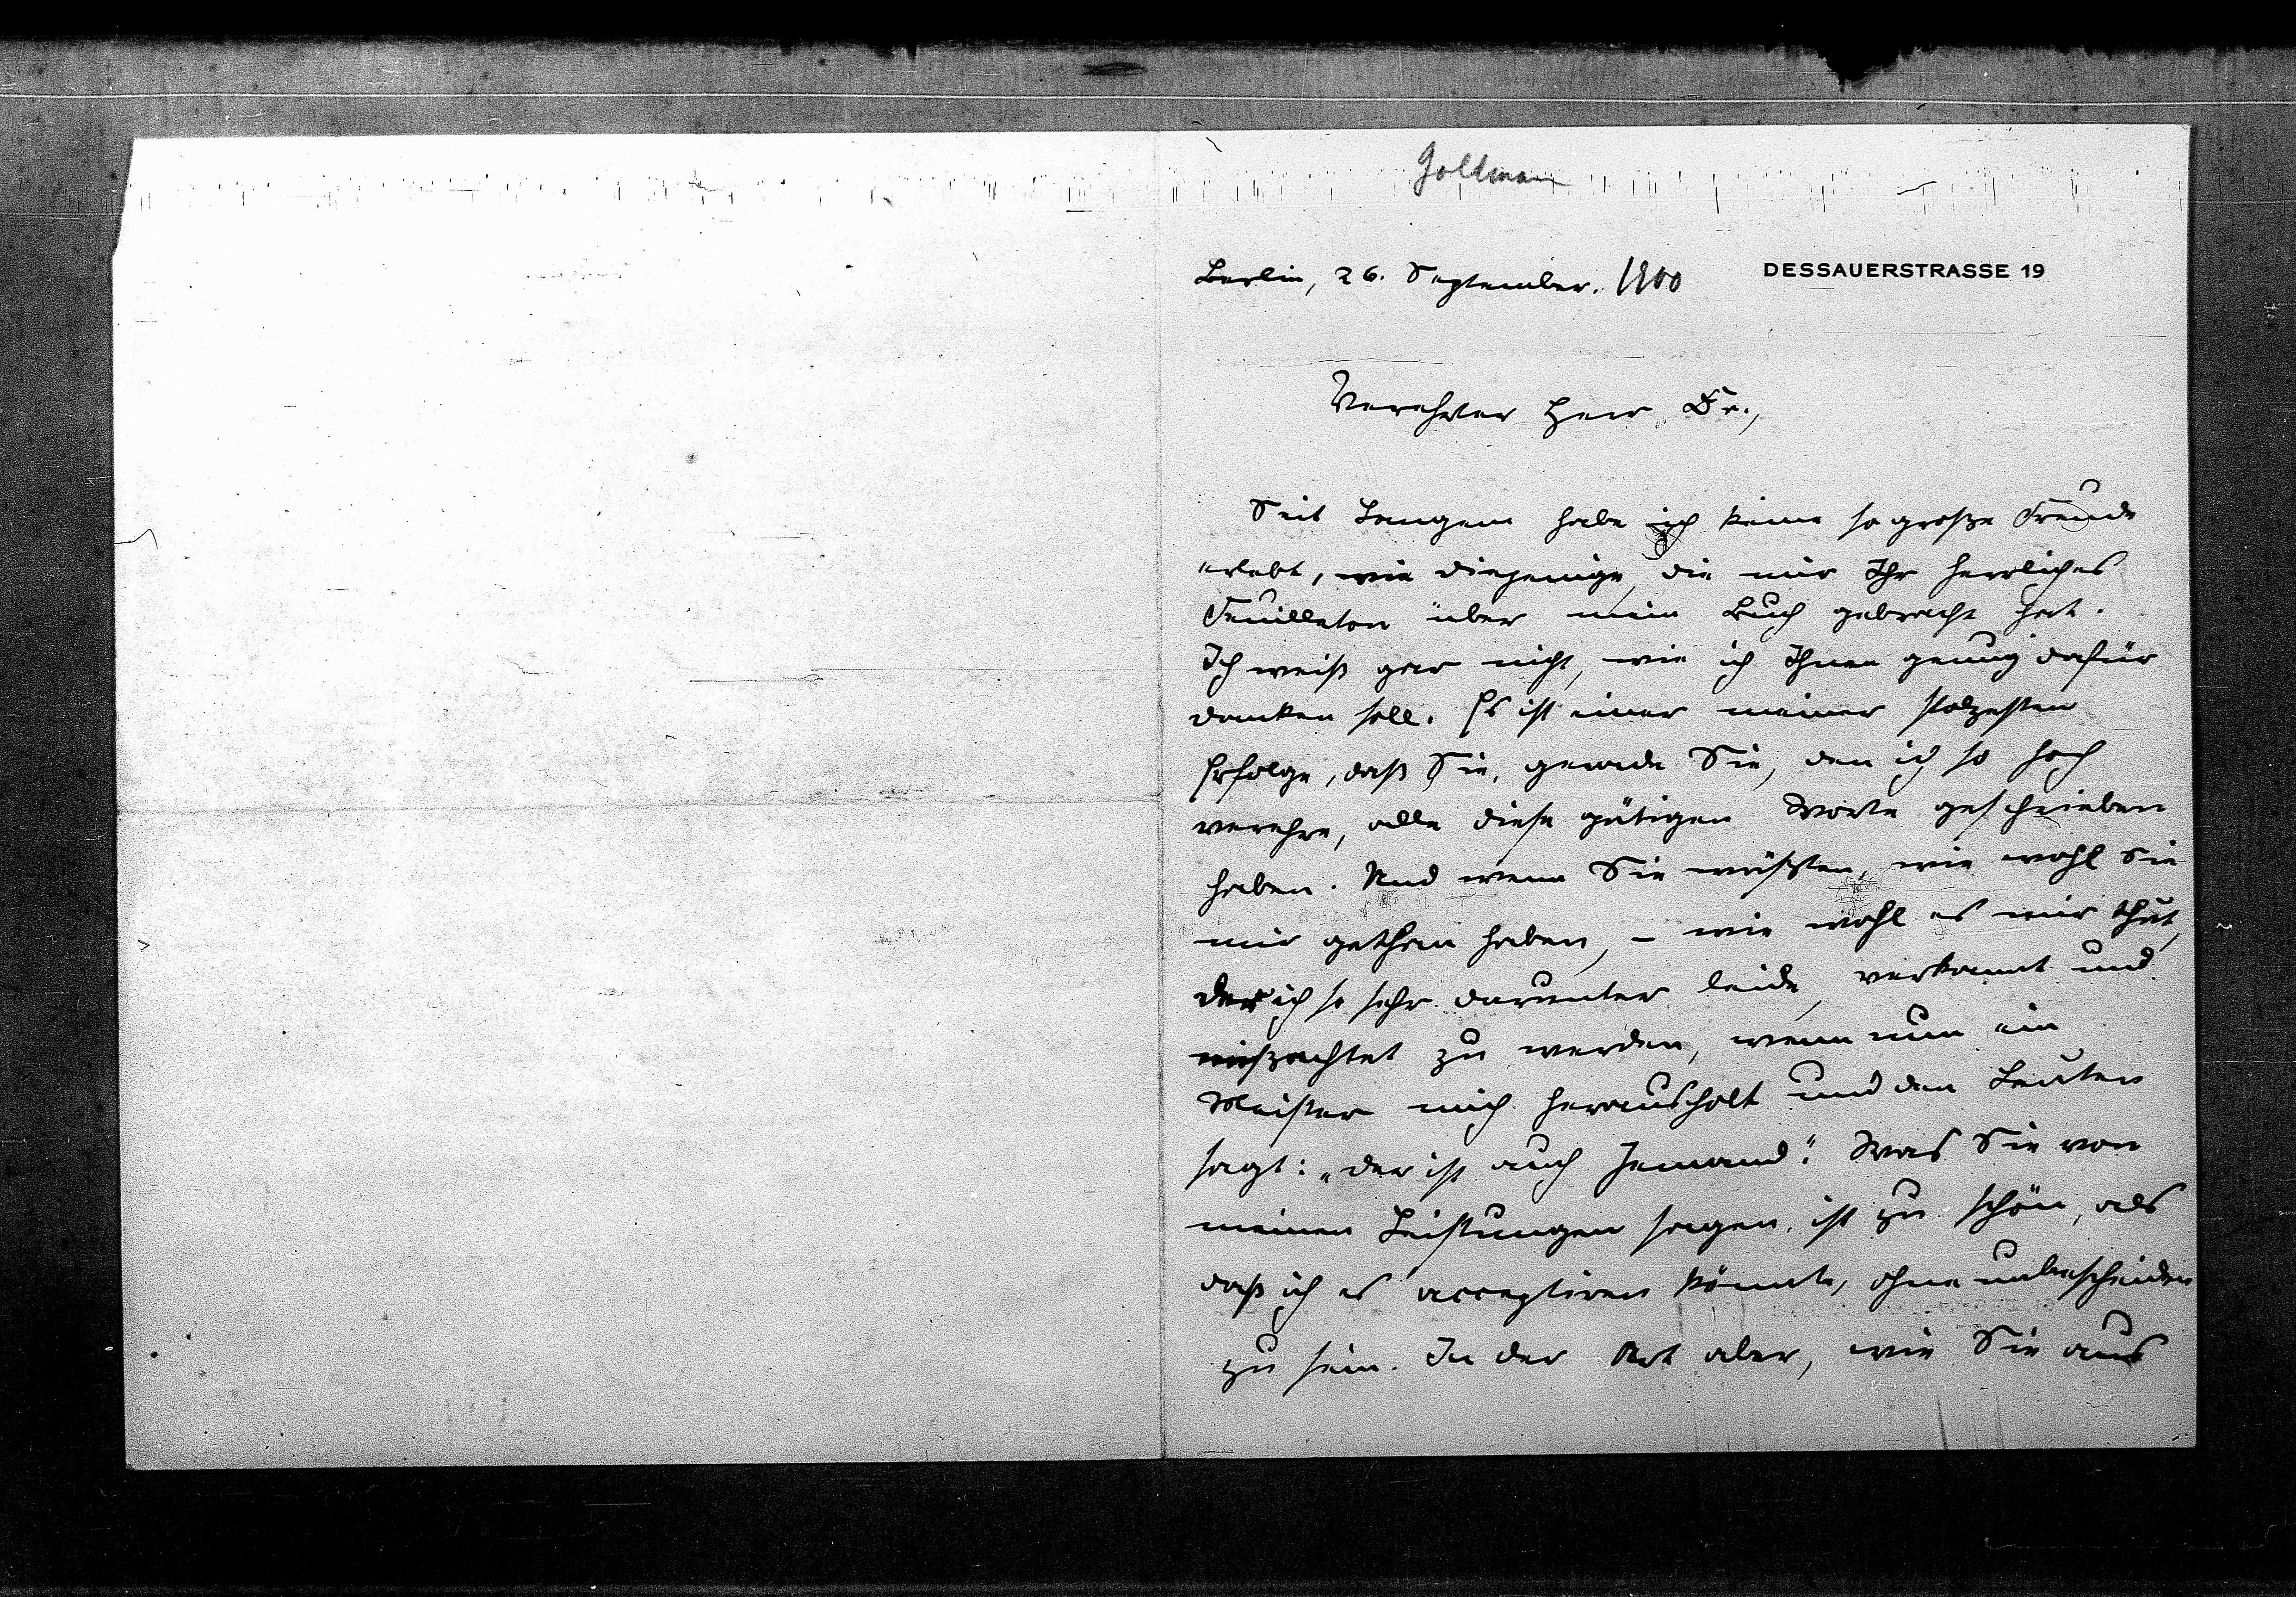 Goldmann
Berlin, 26. September. 1900 DESSAUERSTRASSE 19
Verehrter Herr Dr.,
Seit Langem habe ich keine so große Freude
erlebt, wie diejenige, die mir Ihr herrliches
Feuilleton über mein Buch gebracht hat.
Ich weiß gar nicht, wie ich Ihnen genug dafür
danken soll. Es ist einer meiner stolzesten
Erfolge, daß Sie, gerade Sie, den ich so hoch
verehre, alle diese gütigen Worte geschrieben
haben. Und wenn Sie wüßten, wie wohl Sie
mir gethan haben, – wie wohl es mir thut,
der ich so sehr darunter leide, verkannt und
mißachtet zu werden, wenn nun ein
Meister mich herausholt und den Leuten
sagt: „der ist auch Jemand“. Was Sie von
meinen Leistungen sagen, ist zu schön, als
daß ich es acceptiren könnte, ohne unbescheiden
zu sein. In der Art aber, wie Sie aus